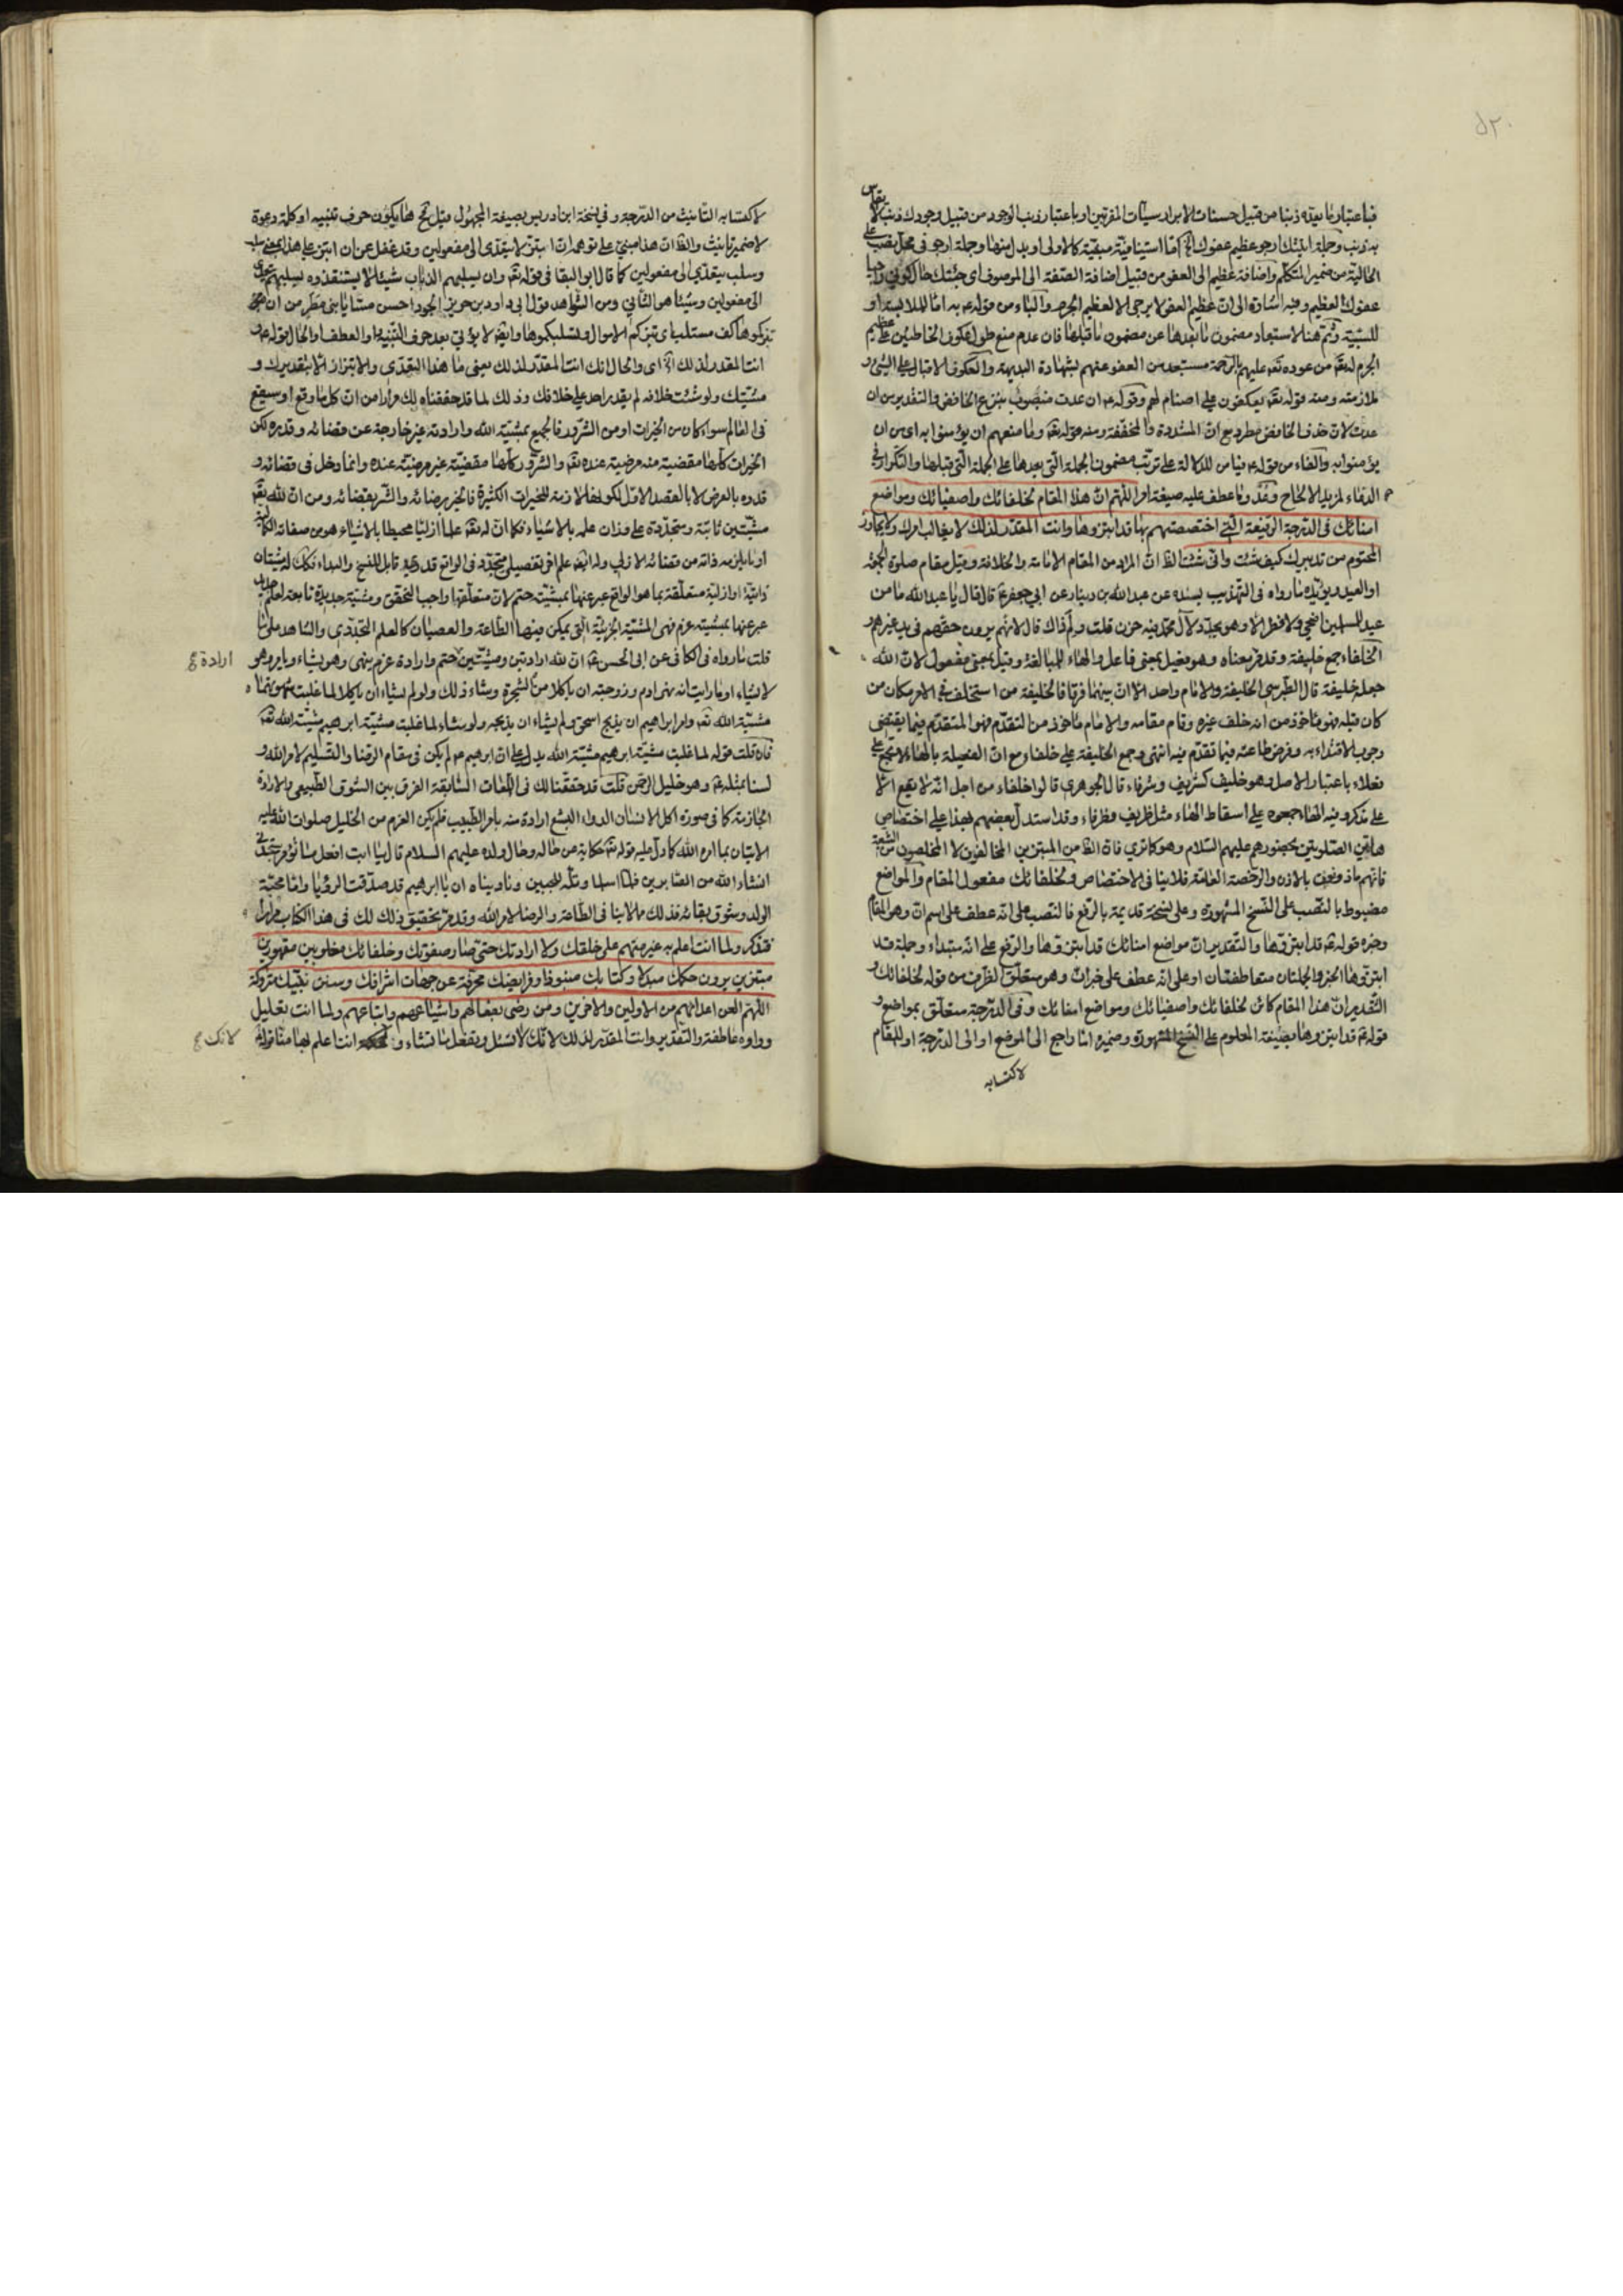 ٥٢٠
فباعتبار ما يعدّه ذنبا من قبيل حسنات الابرار سيئات المقربين او باعتبار ذنب الوجود من قبيل وجودك ذنب لا يقاس
به ذنب وجملة اتيتك ارجو عظيم عفوك الخ امّا استينافيّة مبيّنة كالاولى او بدل منها وجملة ارجو في محل نصب على
الحالية من ضمير المتكلم واضافة عظيم الى العفو من قبيل اضافة الصّفة الى الموصوف اى جئتك حال كوني راجيا
عفوك العظيم وفيه اشارة الى انّ عظيم العفو لا يرجى الا لعظيم الجرم والباء من قوله ع به امّا للملابسة او
للسّببيّة وثمّ هنا لاستبعاد مضمون ما بعدها عن مضمون ما قبلها فان عدم منع طول عكوف الخاطئين على عظيم
الجرم له تعالى من عوده تعالى عليهم بالرّحمة مستبعد من العفو عنهم بشهادة البديهة والعكوف الاقبال على الشئ و
ملازمته ومنه قوله تعالى يعكفون على اصنام لهم وقوله ع ان عدت منصوب بنزع الخافض والتقدير من ان
عدت لانّ حذف الخافض مطرد مع انّ المشددة والمخففة ومنه قوله تعالى وما منعهم ان يؤمنوا به اى من ان
يؤمنوا به والفاء من قوله ع فيا من للدلالة على ترتّب مضمون الجملة الّتي بعدها على الجملة الّتي قبلها والتكرار في
الدعاء لمزيد الالحاح وعُدْ وما عطف عليه صيغة امر اللّهم انّ هذا المقام لخلفائك واصفيائك ومواضع
امنائك في الدرجة الرفيعة الّتي اختصصتهم بها قد ابتزوها وانت المقدّر لذلك لا يغالب امرك ولا يجاوز
المحتوم من تدبيرك كيف شئت وانّى شئت الظ انّ المراد من المقام الامامة والخلافة وقيل مقام صلوة الجمعة
او العيد ويؤيّده ما رواه في التهذيب بسنده عن عبد الله بن دينار عن ابي جعفر ع قال قال يا عبد الله ما من
عيد للمسلمين اضحى ولا فطر الا وهو يجدّد لآل محمّد فيه حزن قلت ولم ذاك قال لانّهم يرون حقهم في يد غيرهم و
الخلفاء جمع خليفة وقد مرّ معناه وهو فعيل بمعنى فاعل والهاء للمبالغة وقيل بمعنى مفعول لانّ الله
جعله خليفة قال الطبرسي الخليفة والامام واحد الّا انّ بينهما فرقا فالخليفة من استخلف في الامر مكان من
كان قبله فهو مأخوذ من انه خلف غيره وقام مقامه والامام مأخوذ من التقدّم فهو المتقدّم فيما يقتضي
وجوب الاقتداء به وفرض طاعته فيما تقدّم فيه انتهى وجمع الخليفة على خلفاء مع انّ الفعيلة بالهاء لا تجمع على
فعلاء باعتبار الاصل وهو خليف كشريف وشرفاء قال الجوهري قالوا خلفاء من اجل انّه لا يقع الّا
على مذكر وفيه الهاء جمعوه على اسقاط الهاء مثل ظريف وظرفاء وقد استدلّ بعضهم بهذا على اختصاص
هاتين الصّلوتين بحضورهم عليهم السّلام وهو كما ترى فانّ الظ من المبتزين المخالفون لا المخلصون من الشيعة
فانّهم مأذونون بالاذن والرخصة العامّة فلا ينافي الاختصاص ولخلفائك مفعول المقام والمواضع
مضبوط بالنّصب على النّسخ المشهورة وعلى نسخة قديمة بالرّفع فالنّصب على انّه عطف على اسم انّ وهو المقام
وخبره قوله ع قد ابتزّوها والتقدير انّ مواضع امنائك قد ابتزّوها والرّفع على انّه مبتداء وجملة قد
ابتزّوها الخبر والجملتان متعاطفتان او على انّه عطف على خبر انّ وهو متعلّق الظرف من قوله لخلفائك و
التّقدير انّ هذا المقام كائن لخلفائك واصفيائك ومواضع امنائك وفي الدّرجة متعلّق بمواضع و
قوله ع قد ابتزوها بصيغة المعلوم على النّسخ المشهورة وضميره امّا راجع الى الموضع او الى الدّرجة او للمقام
لاكتسابه
لاكتسابه التّانيث من الدّرجة وفي نسخة ابن ادريس بصيغة المجهول قيل فح هاء يكون حرف تنبيه او كلمة دعوة
لا ضمير تانيث والظ انّ هذا مبنيّ على توهم انّ ابتزّ لا يتعدّى الى مفعولين وقد غفل عن ان ابتز على هذا بمعنى سلب
وسلب يتعدّى الى مفعولين كما قال ابو البقا في قوله تعالى وان يسلبهم الذباب شيئا لا يستنقذوه يسلبهم يتعدّى
الى مفعولين وشيئا هو الثّاني ومن الشّواهد قول ابي داود بن حريز الجود احسن مسّا يا بني مطر من ان
تبزّكموها كف مستلب اى تبزكم الاموال وتسلبكموها وايضا لا يؤتى بعد حرف التّنبيه واو العطف او الحال وقوله ع و
انت المقدر لذلك الخ اى والحال انك انت المقدّر لذلك يعنى ما هذا التعدّى والابتزاز الّا بتقديرك و
مشيّتك ولو شئت خلافه لم يقدر احد على خلافك وذلك لما قد حققناه لك مرارا من انّ كل ما وقع او سيقع
في العالم سواء كان من الخيرات او من الشّرور فالجميع بمشيّة الله وارادته غير خارجة عن قضائه وقدره لكن
الخيرات كلّها مقضية منه مرضية عنده تعالى والشرور كلّها مقضيّة غير مرضيّة عنده وانما دخل في قضائه و
قدره بالعرض لا بالقصد الاوّل لكونها لازمة للخيرات الكثيرة فالخير برضائه والشّر بقضائه ومن انّ لله تعالى
مشيّتين ثابتة ومتجدّدة على وزان علمه بالاشياء فكما انّ له تعالى علما ازليّا محيطا بالاشياء هو من صفاته الكماليّة
او ما يلزمه ذاته من قضائه الازلي وله ايضا علم اخر تفصيلي متجدّد في الواقع قدري قابل للنسخ والبداء فكك له مشيّتان
ذاتية او ازلية متعلّقة بما هو الواقع عبر عنها بمشيّة حتم لانّ متعلّقها واجب التحقق ومشيّة جديدة تابعة لعلم جديد
عبر عنها بمشيّة عزم فهي المشيّة الجزئيّة الّتي يمكن فيها الطّاعة والعصيان كالعلم التجدّدي والشاهد على ما
قلت ما رواه في الكافي عن ابي الحسن ع انّ لله ارادتين ومشيّتين حتم وارادة عزم ينهى وهو يشاء ويامر وهو
ارادة ع
لا يشاء او ما رايت انه نهى ادم وزوجته ان ياكلا من الشجرة ويشاء ذلك ولو لم يشاء ان ياكلا لما غلبت شهوتهما
مشيّة الله تعالى وامر ابراهيم ان يذبح اسحق ولم يشاء ان يذبحه ولو شاء لما غلبت مشيّة ابرهيم مشيّة الله تعالى
فان قلت قوله لما غلبت مشيّة ابرهيم مشيّة الله يدل على ان ابرهيم ع لم يكن في مقام الرضا والتسليم لامر الله و
لسنا بمثله تعالى وهو خليل الرّحمن قلت قد حققنا لك في اللّمعات السّابقة الفرق بين الشّوق الطّبيعي والارادة
الجازمة كما في صورة اكل الانسان الدواء البشع ارادة منه بامر الطّبيب فلم يكن العزم من الخليل صلوات الله عليه
الاتيان بما امره الله كما دلّ عليه قوله تعالى حكاية عن حاله وحال ولده عليهم السلام قال يا ابت افعل ما تؤمر ستجدني
انشاء الله من الصّابرين فلمّا اسلما وتلّه للجبين وناديناه ان يا ابرهيم قد صدّقت الرؤيا وامّا محبّة
الولد وشوق بقائه فذلك مما لا ينافي الطّاعة والرضا لامر الله وقد مرّ تحقيق ذلك لك في هذا الكتاب مرارا
فتذكر ولما انت اعلم به غير متهم على خلقك ولا ارادتك حتّى صار صفوتك وخلفائك مغلوبين مقهورين
مبتزين يرون حكمك مبدلا وكتابك منبوذا وفرايضك محرفة عن جهات اشراعك وسنن نبيّك متروكة
اللّهم العن اعدائهم من الاولين والاخرين ومن رضى بفعالهم واشياعهم واتباعهم ولما انت تعليل
وواوه عاطفة والتّقدير وانت المقدّر لذلك لانّك لا تسئل وتفعل ما تشاء و انت اعلم بها منا قوله
لانك ع